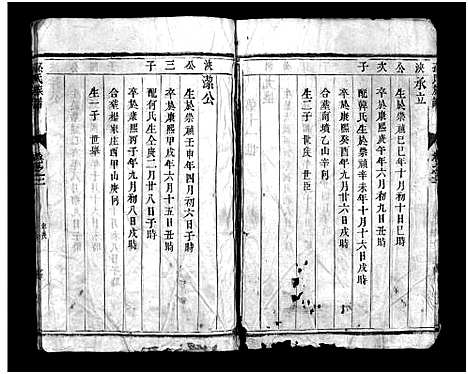 浹承立
公 生於崇禎己巳年十月初十日子時
次 卒於康熙庚午年六月初九日丑時
子 配韓氏生於崇禎辛未年十月十六日戌時
卒於康熙癸酉年九月廿六日戌時
合葬南墳乙山辛向
生二子 世庆 世臣
浹 潔公
公 生於崇禎甲申年四月初六日子時
三 卒於康熙甲戌年六月十五日丑時
子 配何氏生仝庚二月廿八日子時
卒於康熙丙子年九月初八日戌時
合葬楊家庄西甲山庚向
生一子 世舉